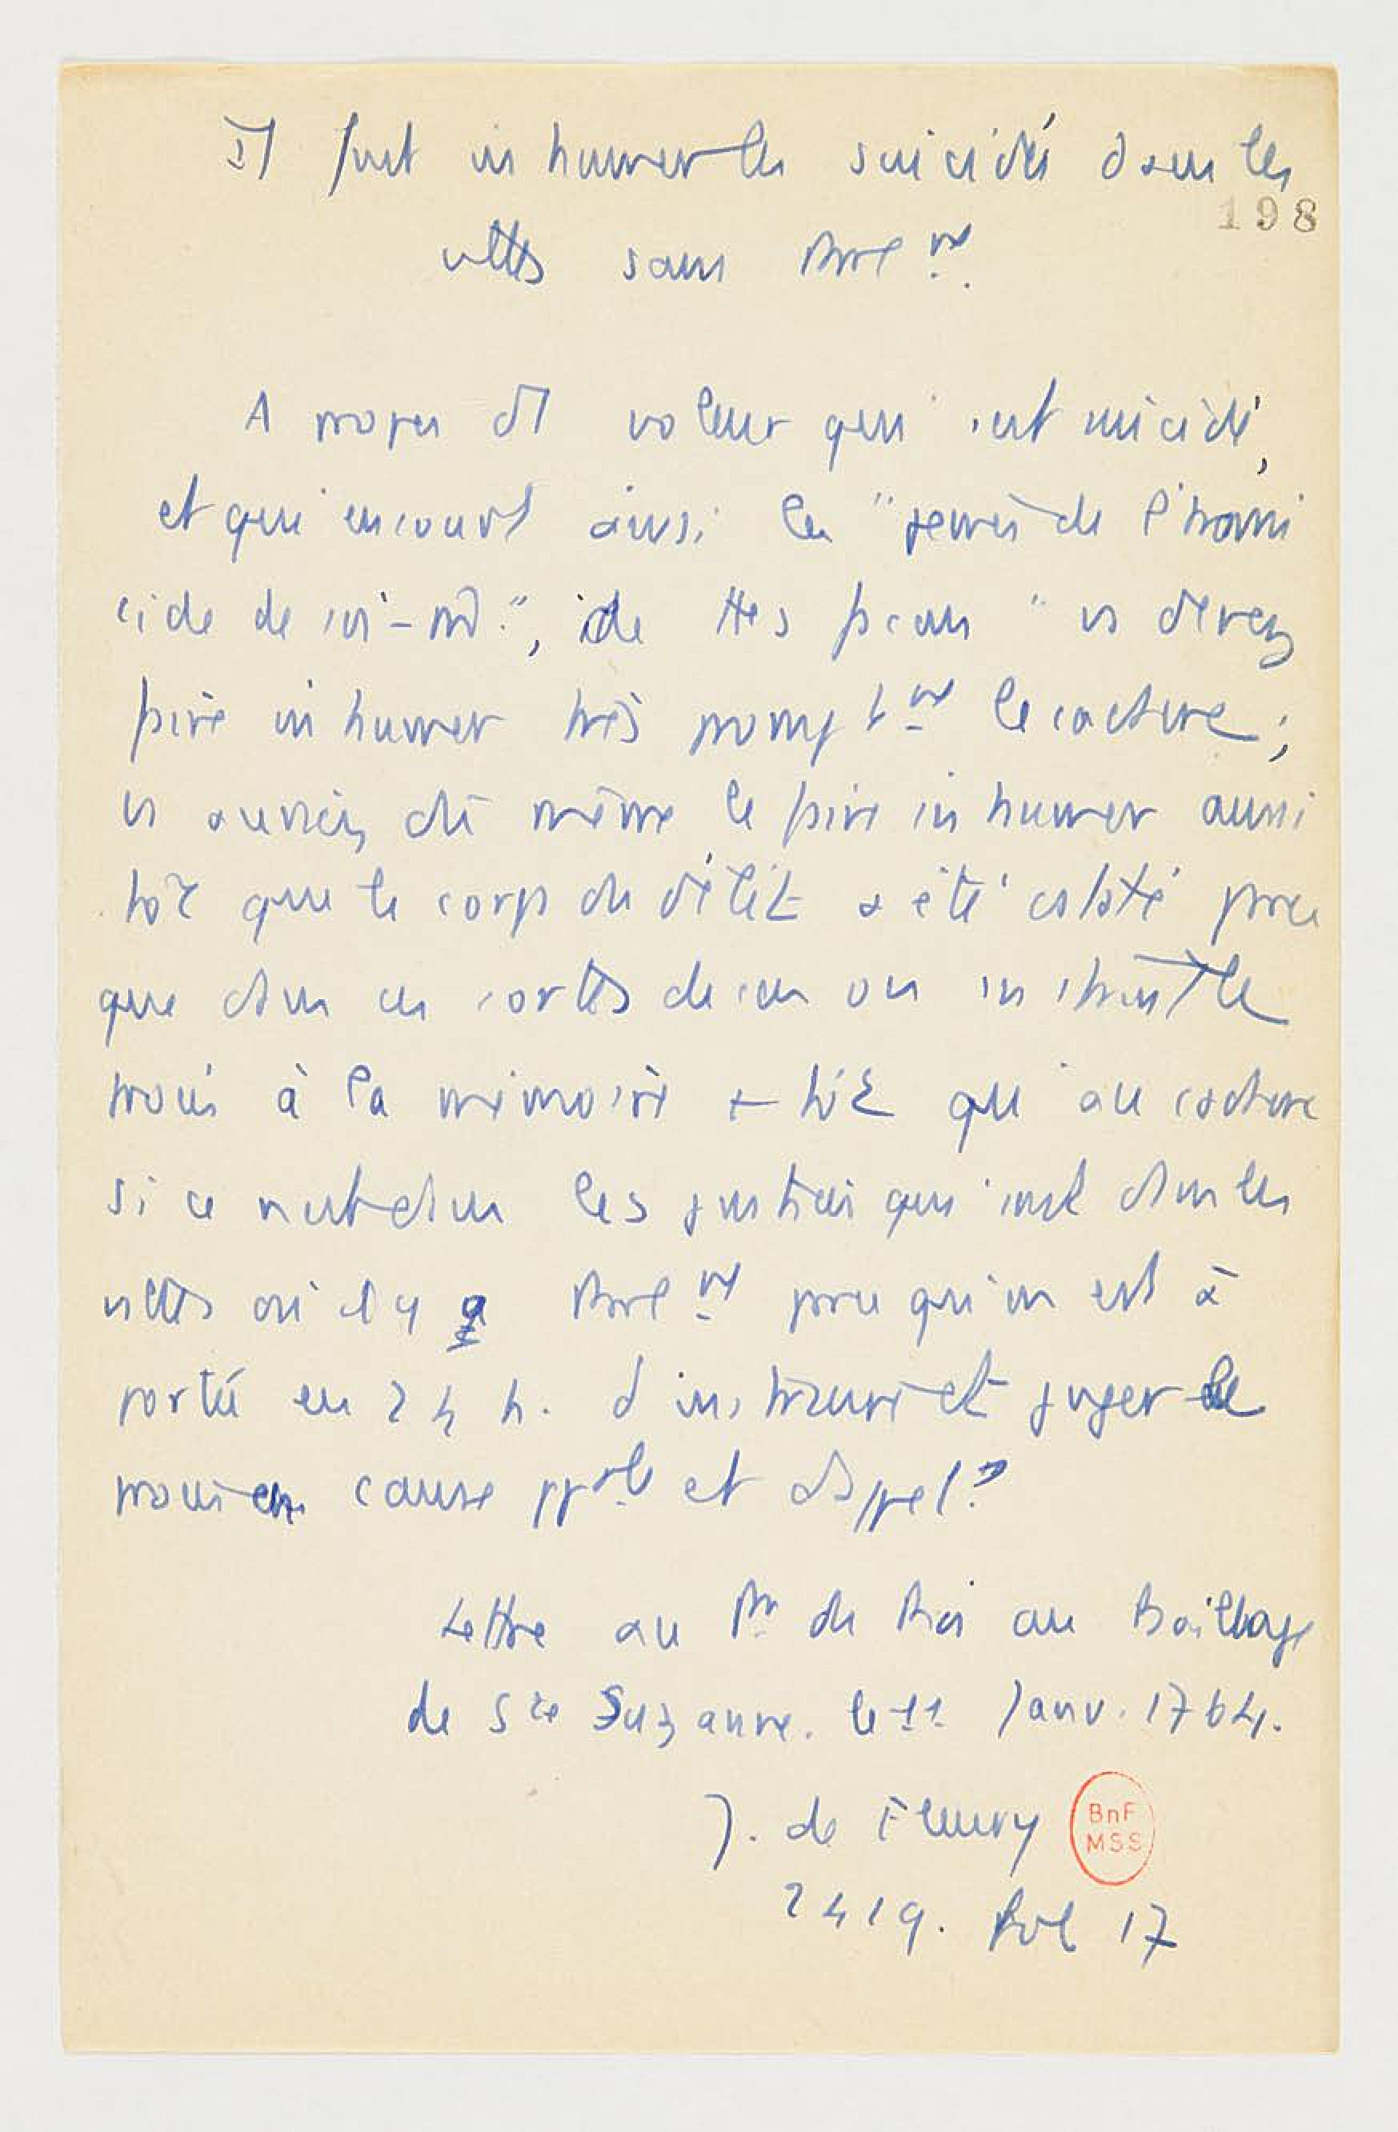 Il faut inhumer les suicidés dans les
198
villes sans Parl nt.
A propos d'1 voleur qui s'est suicidé,
et qui encourt ainsi les "peines de l'homi
cide de soi-m̂.", de ttes façons " vs devez
faire inhumer très prompt nt le cadavre ;
vs auriez dû même le faire inhumer aussi
tôt que le corps du délit a été cstaté parce
que dans ces sortes de cas on instruit le
procès à la mémoire + tôt qu'au cadavre
si ce n'est dans les justices qui sont dans les
villes où il y a Parl nt parce qu'on est à
portée en 24 h. d'instruire et juger le
procès en cause pp ale et d'appel."
Lettre au Pr du Roi au Bailliage
de Ste Suzanne. le 11 Janv. 1764.
J. de Fleury
BnF
MSS
2419. Fol 17